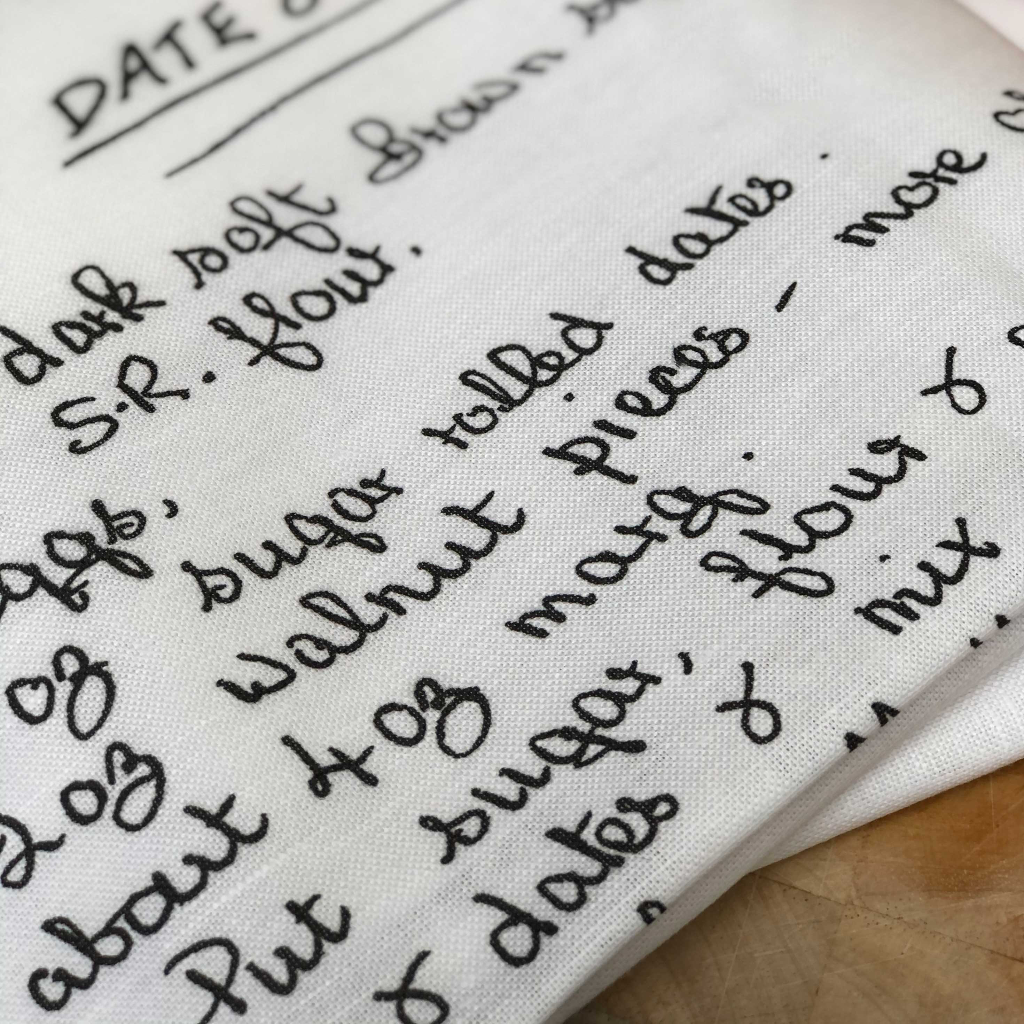 DATE
dark soft brown
S.R. flour.
eggs,
oz sugar rolled dates.
2 oz walnut pieces - more
about 4 oz marg.
Put sugar, flour &
& dates & mix